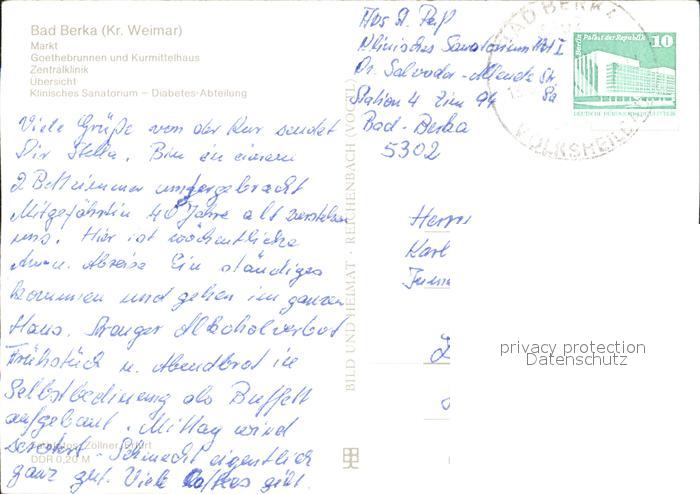 Bad Berka (Kr. Weimar)
Markt
Goethebrunnen und Kurmittelhaus
Zentralklinik
Übersicht
Klinisches Sanatorium – Diabetes-Abteilung
Viele Grüße von der Kur sendet
Dir Stella. Bin in einem
2 Bettzimmer untergebracht
Mitgefährtin 40 Jahre alt verstehen
uns. Hier ist wöchentliche
An- u. Abreise Ein ständiges
kommen und gehen im ganzen
Haus. Strenger Alkoholverbot
Frühstück u. Abendbrot in
Selbstbedienung als Buffett
aufgebaut. Mittag wird
serviert. Schmeckt eigentlich
ganz gut. Viele
Zöllner, Erfurt
DDR 0,20 M
BILD UND HEIMAT · REICHENBACH (VOGTL)
Abs.
Klinisches Sanatorium I
Dr. Salvador-Allende Str.
Station 4 Zim 94
Bad-Berka
5302
BAD BERKA
VOLKSHEILBAD
Berlin Palast der Republik
10
Herrn
Karl
privacy protection
Datenschutz